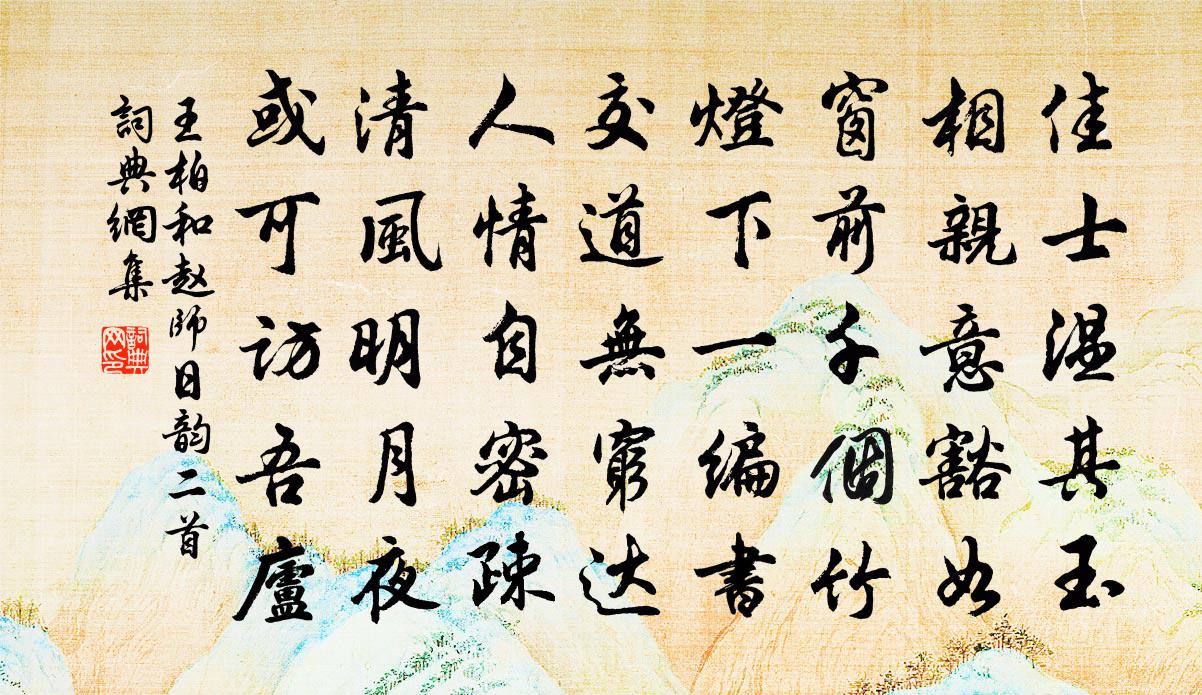 佳士溫其玉
相親意豁如
窗前千個竹
燈下一編書
交道無窮达
人情自密疎
清風明月夜
或可訪吾廬
王柏和赵師日韵二首
詞典網集
詞典網印